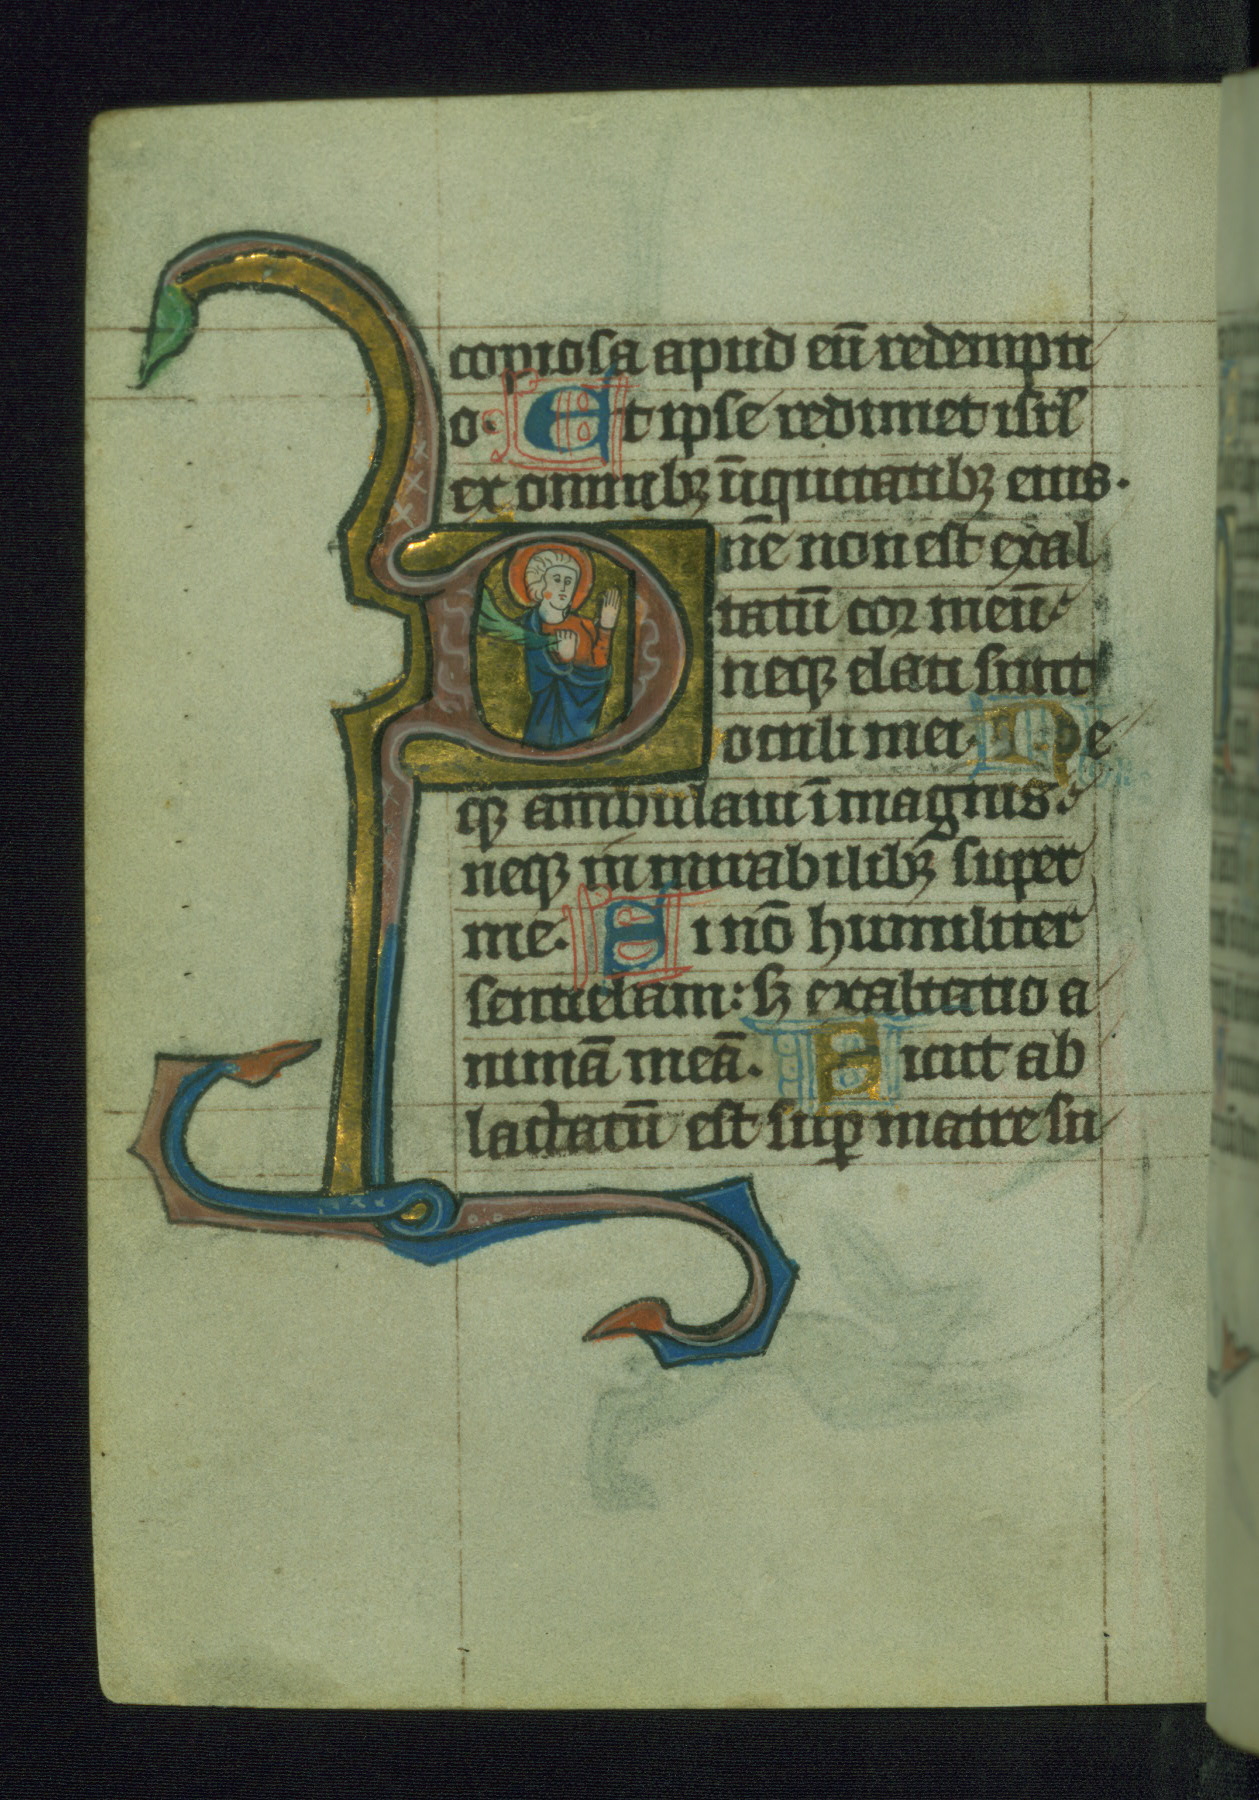 copiosa apud eū redempti
o. Et ipse redimet isrl̄
ex omnibꝫ īiquitatibꝫ eius.
Dn̄e non est exal
tatū cor meū:
neqꝫ elati sunt
oculi mei. Ne
qꝫ ambulaui ī magnis:
neqꝫ in mirabilibꝫ super
me. Si nō humiliter
sentiebam: sꝫ exaltatio a
nimā meā. Sicut ab
lactatū est suꝑ matre su